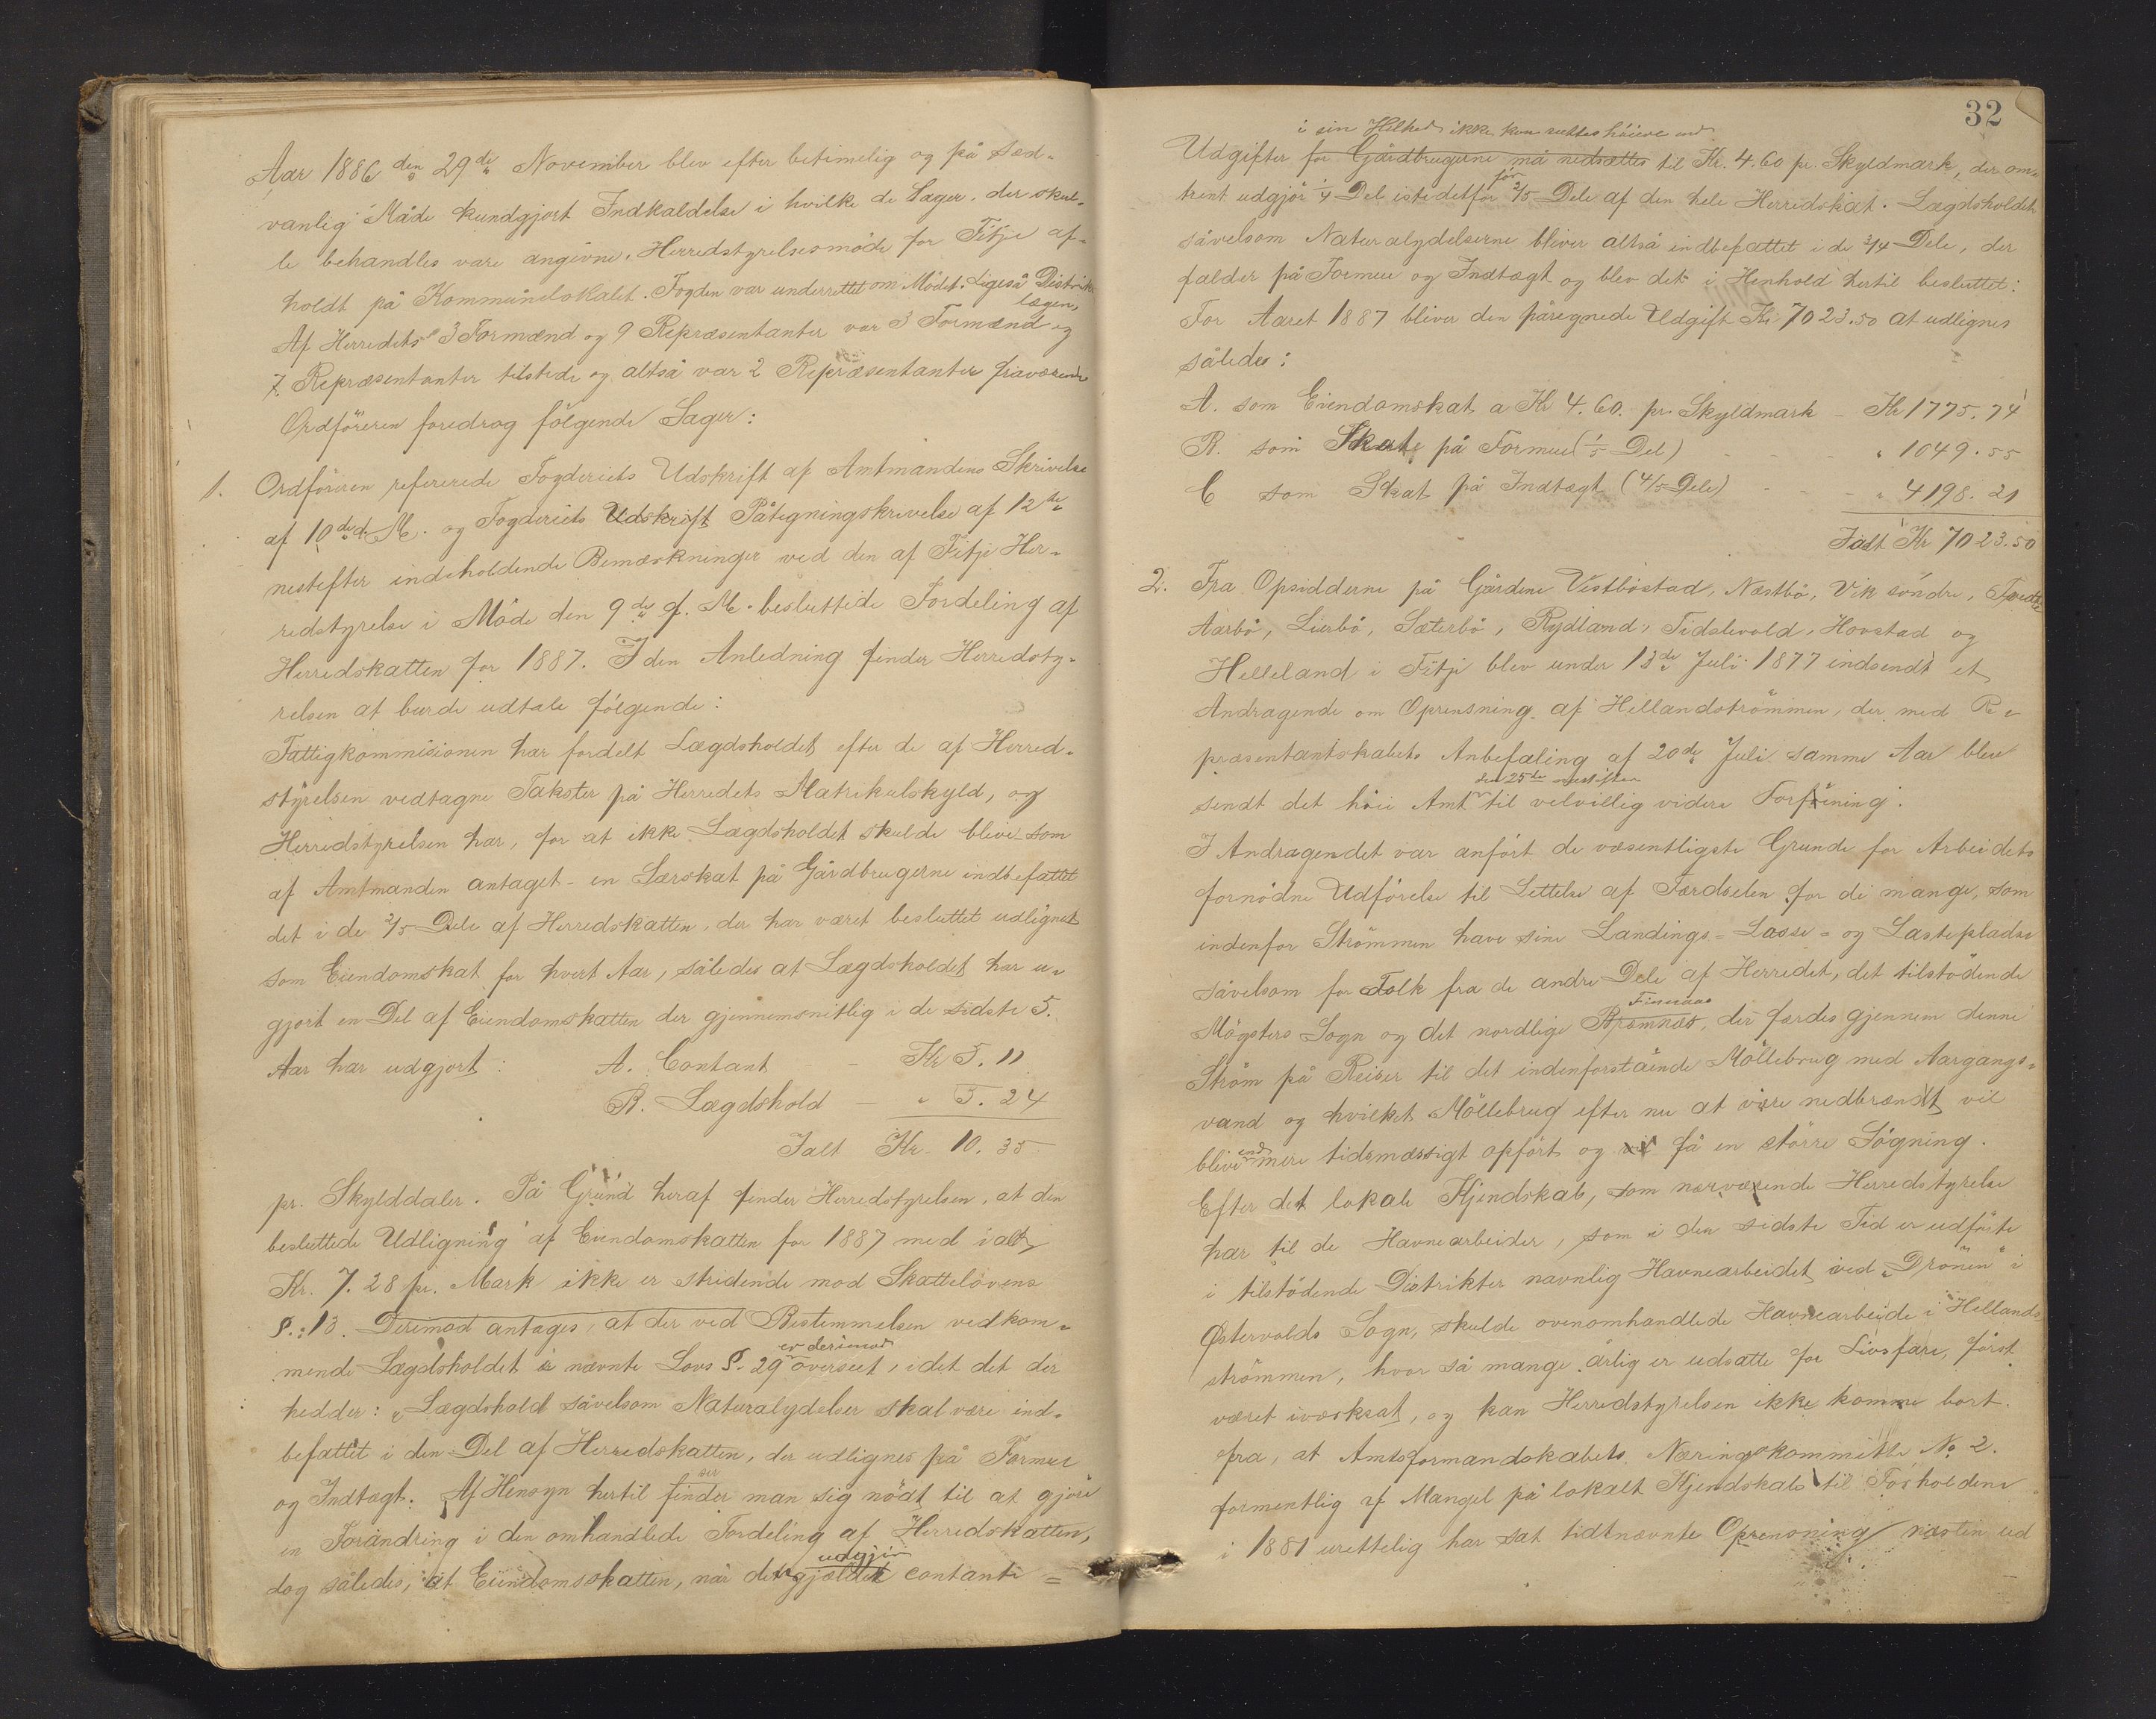 Aar 1886 den 29de November blev efter betimelig og på sæd-
vanlig Måde kundgjort Indkaldelse i hvilke de Sager, der skul-
le behandles vare angivne, Herredstyrelsesmöde for Fitje af-
holdt på Kommunelokalet. Fogden var underrettet om Mödet. Ligeså Distrikts
lægen,
Af Herredets 3 Formænd og 9 Repræsentanter var 3 Formænd og
7 Repræsentanter tilstede og altså var 2 Repræsentanter fraværende
Ordföreren foredrog fölgende Sager:
1. Ordföreren refererede Fogderiets Udskrift af Amtmandens Skrivelse
af 10de d. M. og Fogderiets Udskrift Påtegningskrivelse af 12te
nestefter indeholdende Bemærkninger ved den af Fitje Her-
redstyrelse i Möde den 9de f. M. besluttede Fordeling af
Herredskatten for 1887. I den Anledning finder Herredsty-
relsen at burde udtale fölgende:
Fattigkommisionen har fordelt Lægdsholdet efter de af Herred-
styrelsen vedtagne Takster på Herredets Matrikulskyld, og
Herredstyrelsen har, for at ikke Lægdsholdet skulde blive som
af Amtmanden antaget - en Særskat på Gårdbrugerne indbefattet
det i de 2/5 Dele af Herredskatten, der har været besluttet udlignet
som Eiendomskat for hvert Aar, således at Lægdsholdet har u-
gjort en Del af Eiendomskatten der gjennemsnitlig i de sidste 5.
Aar har udgjort: A. Contant - Kr 5. 11
B. Lægdshold - " 5. 24
Ialt Kr. 10. 35
pr. Skylddaler. På Grund heraf finder Herredstyrelsen, at den
besluttede Udligning af Eiendomskatten for 1887 med ialt
Kr. 7. 28 pr. Mark ikke er stridende mod Skattelovens
§.: 13. Derimod antages, at der ved Bestemmelsen vedkom-
er derimod
mende Lægdsholdet i nævnte Lovs §. 29 overseet, idet det der
hedder: "Lægdshold såvelsom Naturalydelser skal være ind-
befattet i den Del af Herredskatten, der udlignes på Formue
ser
og Indtægt. Af Hensyn hertil finder man sig nödt til at gjöre
en Forandring i den omhandlede Fordeling af Herredskatten,
udgjör
dog således, at Eiendomsskatten, når det gjælder contante =
32
i sin Helhed ikke kan sættes höiere end
Udgifter for Gårdbrugerne må nedsættes til Kr. 4.60 pr. Skyldmark, der om-
för
trent udgjör 1/4 Del istedetfor 2/5 Dele af den hele Herredskat. Lægdsholdet
såvelsom Naturalydelserne bliver altså indbefattet i de 3/4 Dele, der
falder på Formue og Indtægt og blev det i Henhold hertil besluttet:
For Aaret 1887 bliver den påregnede Udgift Kr 7023.50 at udlignes
således:
A. som Eiendomskat a Kr 4.60. pr. Skyldmark - Kr 1775. 74
B. som Skat på Formue (1/5 Del) - - - - " 1049. 55
C som Skat på Indtægt (4/5 Dele) - - - - " 4198. 21
Ialt Kr 7023.50
2. Fra Opsidderne på Gårdene Vestböstad, Næstbö, Vik söndre,
Aarbö, Lierbö, Sæterbö, Rydland, Tislevold, Hovstad og
Helleland i Fitje blev under 13de Juli 1877 indsendt et
Andragende om Oprensning af Hellandströmmen, der med Re-
præsentantskabets Anbefaling af 20de Juli samme Aar blev
den 25de nestefter
sendt det höie Amt til velvillig videre Forföining.
I Andragendet var anfört de væsentligste Grunde for Arbeidets
fornödne Udförelse til Lettelse af Færdselen for de mange, som
indenfor Strömmen have sine Landings- Losse- og Lastepladse
såvelsom for Folk fra de andre Dele af Herredet, det tilstödende
Finnaas
Mögsters Sogn og det nordlige Bremnæs, der færdes gjennem denne
Ström på Reiser til det indenforstående Möllebrug med Aargangs-
vand og hvilket Möllebrug efter nu at være nedbrændt vil
end
blive mere tidsmæssigt opfört og vil få en större Sögning.
Efter det lokale Kjendskab, som nærværende Herredstyrelse
har til de Havnearbeider, som i den sidste Tid er udförte
i tilstödende Distrikter navnlig Havnearbeidet ved "Drönen" i
Östervolds Sogn, skulde ovenomhandlede Havnearbeide i Hellands
strömmen, hvor så mange årlig er udsatte for Livsfare, först
været iværksat, og kan Herredstyrelsen ikke komme bort.
fra, at Amtsformandskabets Næringskommitte No 2.
formentlig af Mangel på lokalt Kjendskab til Forholdene
i 1881 urettelig har sat tidtnævnte Oprensning næsten ud